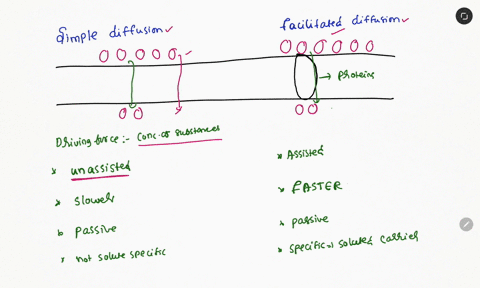 Simple diffusion
facilitated diffusion
proteins
Driving force :- Conc. of substances
unassisted
slower
passive
not solute specific
Assisted
FASTER
passive
specific = solute & carrier